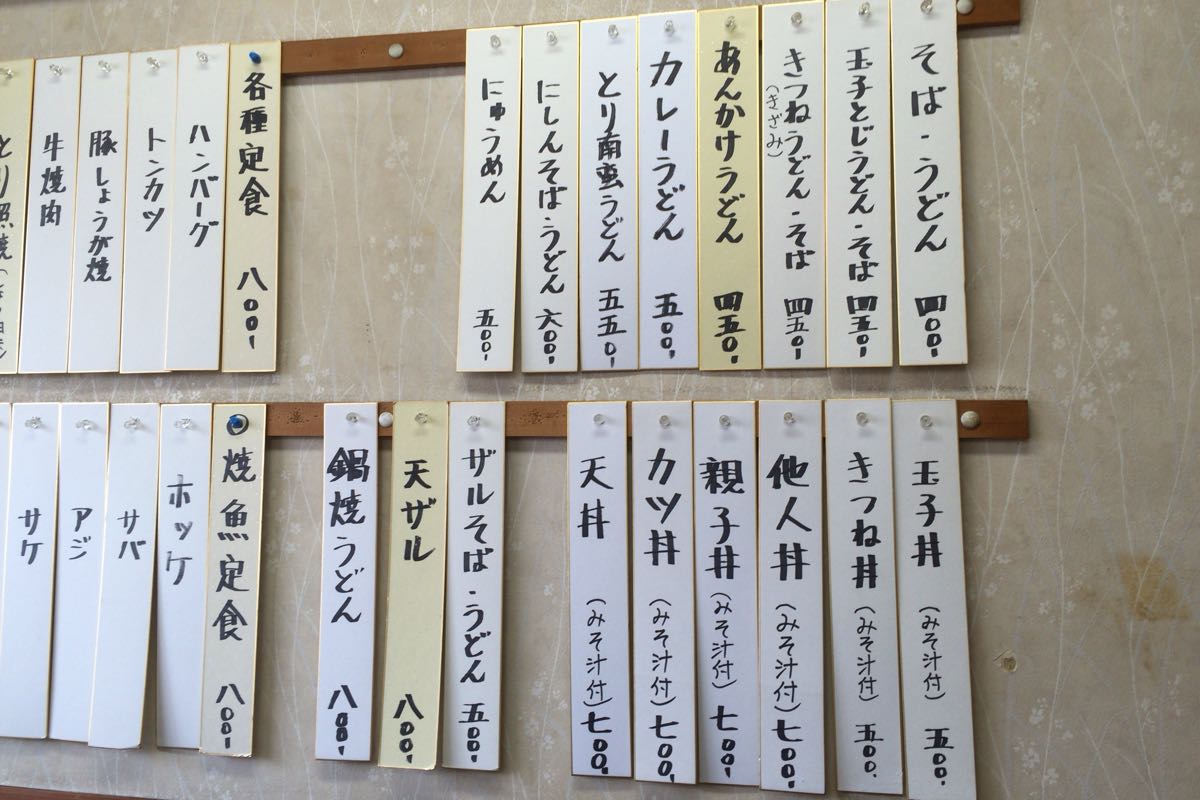 そば・うどん 四00、
玉子とじうどん・そば 四五0、
きつねうどん・そば 四五0、
(きざみ)
あんかけうどん 四五0、
カレーうどん 五00、
とり南蛮うどん 五五0、
にしんそば・うどん 六00、
にゅうめん 五00、
各種定食 八00、
ハンバーグ
トンカツ
豚しょうが焼
牛焼肉
とり照焼
玉子丼 (みそ汁付) 五00、
きつね丼 (みそ汁付) 五00、
他人丼 (みそ汁付) 七00、
親子丼 (みそ汁付) 七00、
カツ丼 (みそ汁付) 七00、
天丼 (みそ汁付) 七00、
ザルそば・うどん 五00、
天ザル 八00、
鍋焼うどん 八00、
焼魚定食 八00、
ホッケ
サバ
アジ
サケ